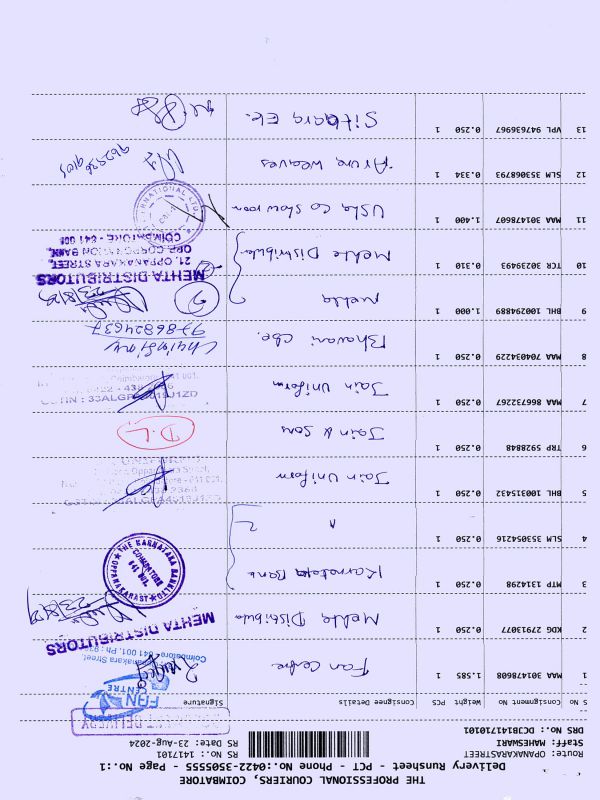 THE PROFESSIONAL COURIERS, COIMBATORE
Delivery Runsheet - PCT - Phone No:.:0422-3505555 - Page No.:1
Route: OPANAKARASTREET
Staff: MAHESWARI
DRS No.: DCIB141710101
RS No.: 1417101
RS Date: 23-Aug-2024
S No Consignment No Weight PCS Consignee Details Signature
1 MAA 301478608 1.585 1 Fan Centre
FAN CENTRE
2 KDG 27913077 0.250 1 Mehta Distributor
MEHTA DISTRIBUTORS
3 MTP 1314298 0.250 1 Karnataka Bank
THE KARNATAKA BANK LTD
OPPANAKARA ST.
COIMBATORE
641 001.
4 SLM 353054216 0.250 1 "
5 BHL 100315432 0.250 1 Jain Uniform
6 TRP 5928848 0.250 1 Jain & Sons D.L
7 MAA 866732267 0.250 1 Jain Uniform
8 MAA 704034229 0.250 1 Bhavani Cbe.
9 BHL 100294889 1.000 1 Mehta 2
MEHTA DISTRIBUTORS
21, OPPANAKARA STREET,
OPP. CORPORATION BANK,
COIMBATORE - 641 001
10 TCR 30239493 0.310 1 Mehta Distributor
11 MAA 301478607 1.400 1 Usha Co Showroom
12 SLM 353068793 0.334 1 Arun Weaves
13 VPL 947636967 0.250 1 Sitaara Ele.